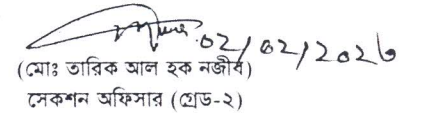 ০২/০২/২০২৬
(মোঃ তারিক আল হক নজীব)
সেকশন অফিসার (গ্রেড-২)